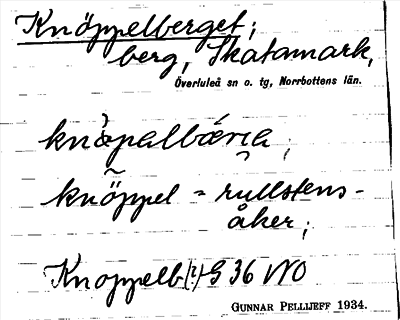 Knöppelberget;
berg, Skatamark,
Överluleå sn o. tg, Norrbottens län.
knöppel = rullstens-
åker;
Knoppelb (?) G 36 NO
GUNNAR PELLIJEFF 1934.